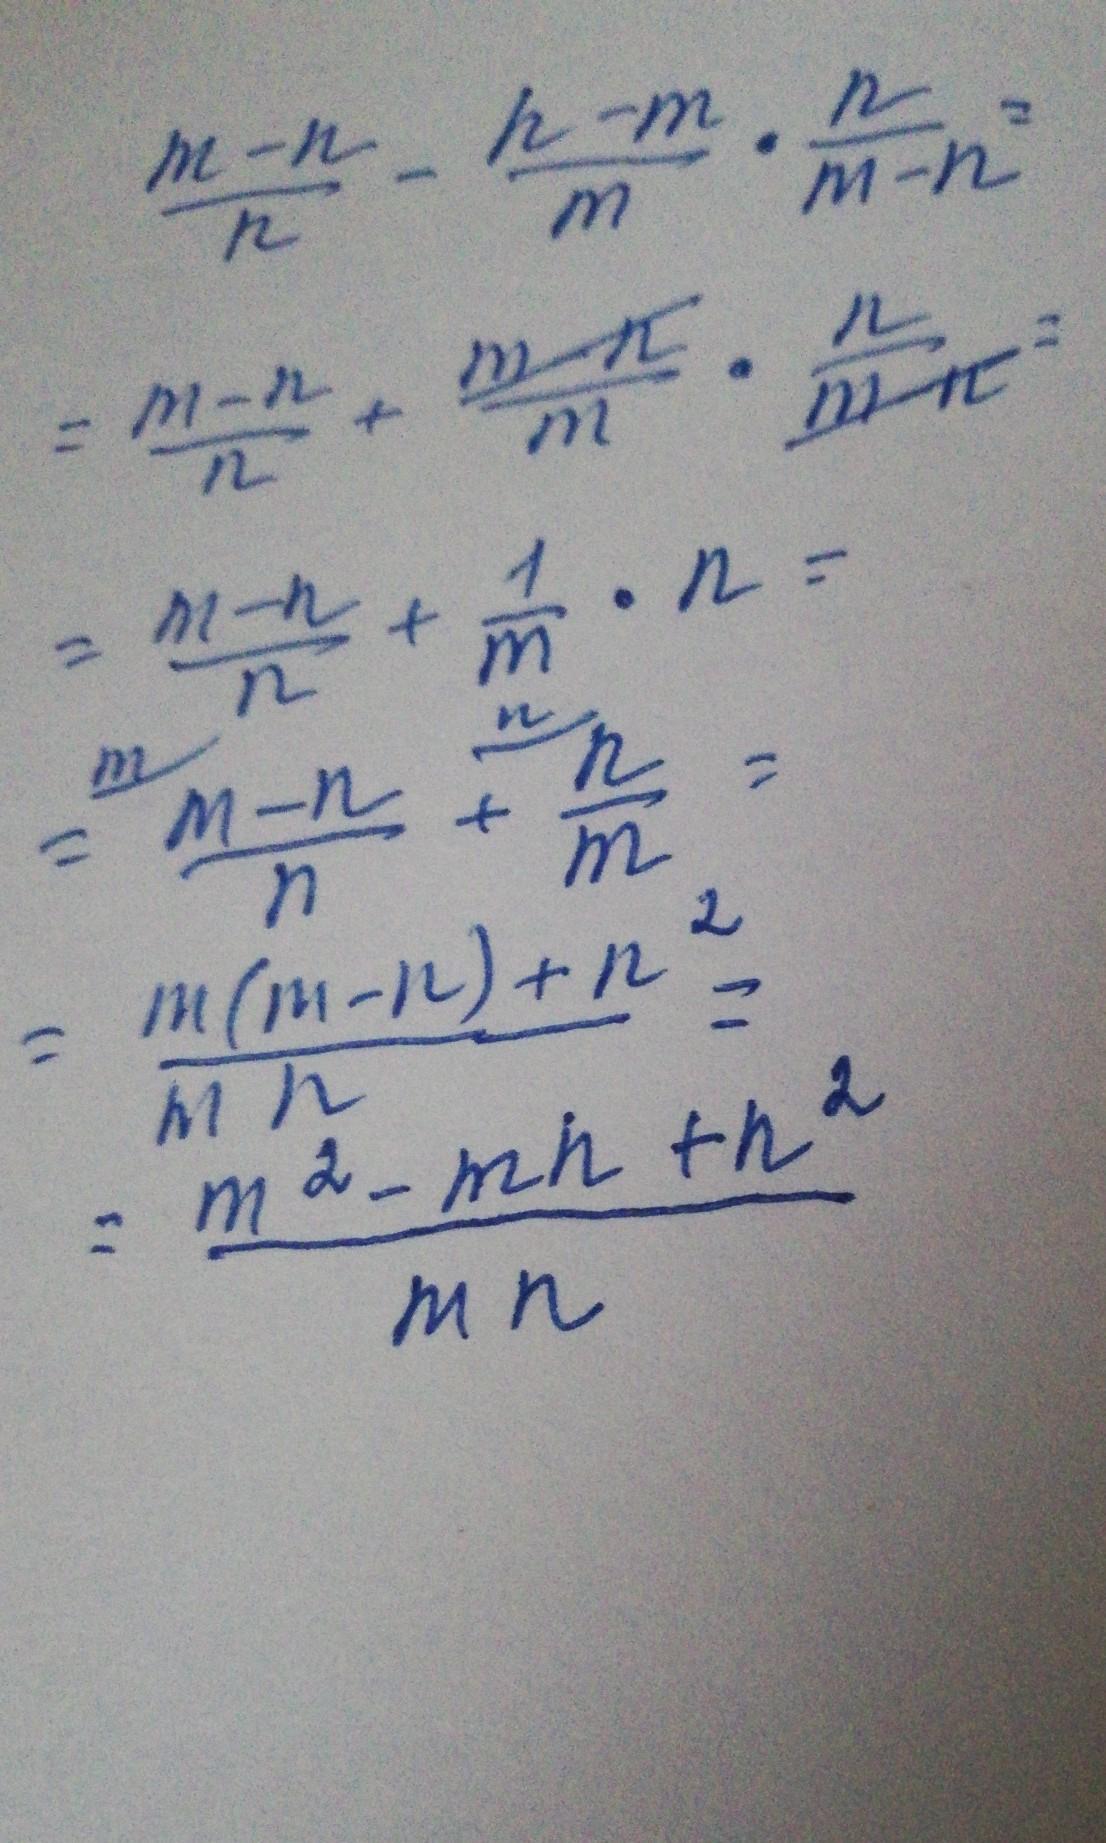 \frac{m-n}{n} - \frac{n-m}{m} \cdot \frac{n}{m-n} =
= \frac{m-n}{n} + \frac{m-n}{m} \cdot \frac{n}{m-n} =
= \frac{m-n}{n} + \frac{1}{m} \cdot n =
= ^{m/} \frac{m-n}{n} + ^{n/} \frac{n}{m} =
= \frac{m(m-n)+n^2}{mn} =
= \frac{m^2-mn+n^2}{mn}